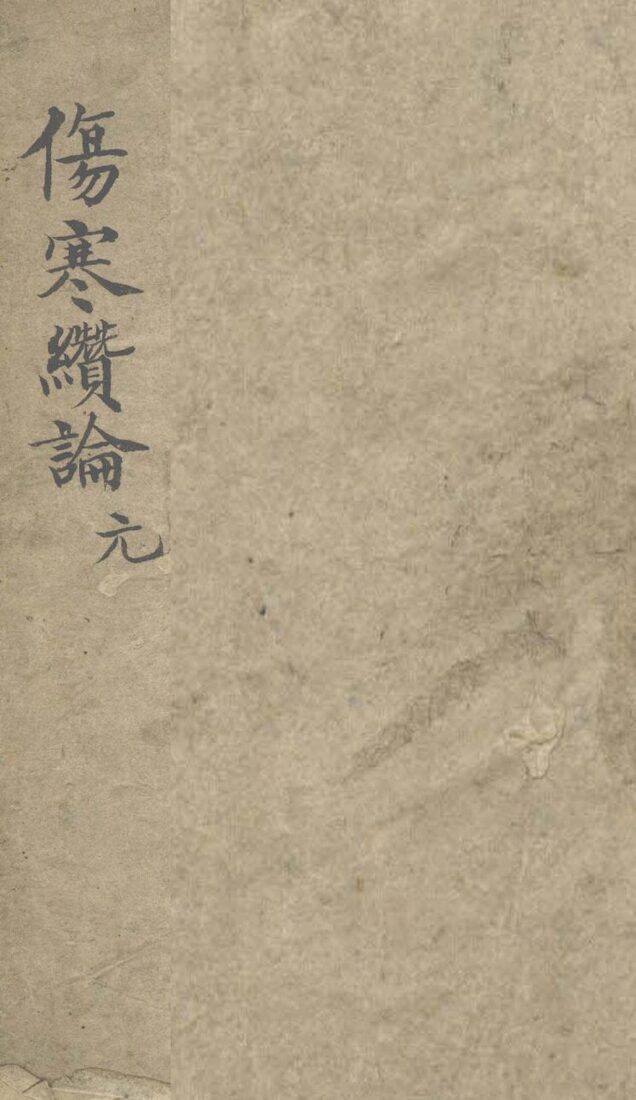 傷寒纘論
元